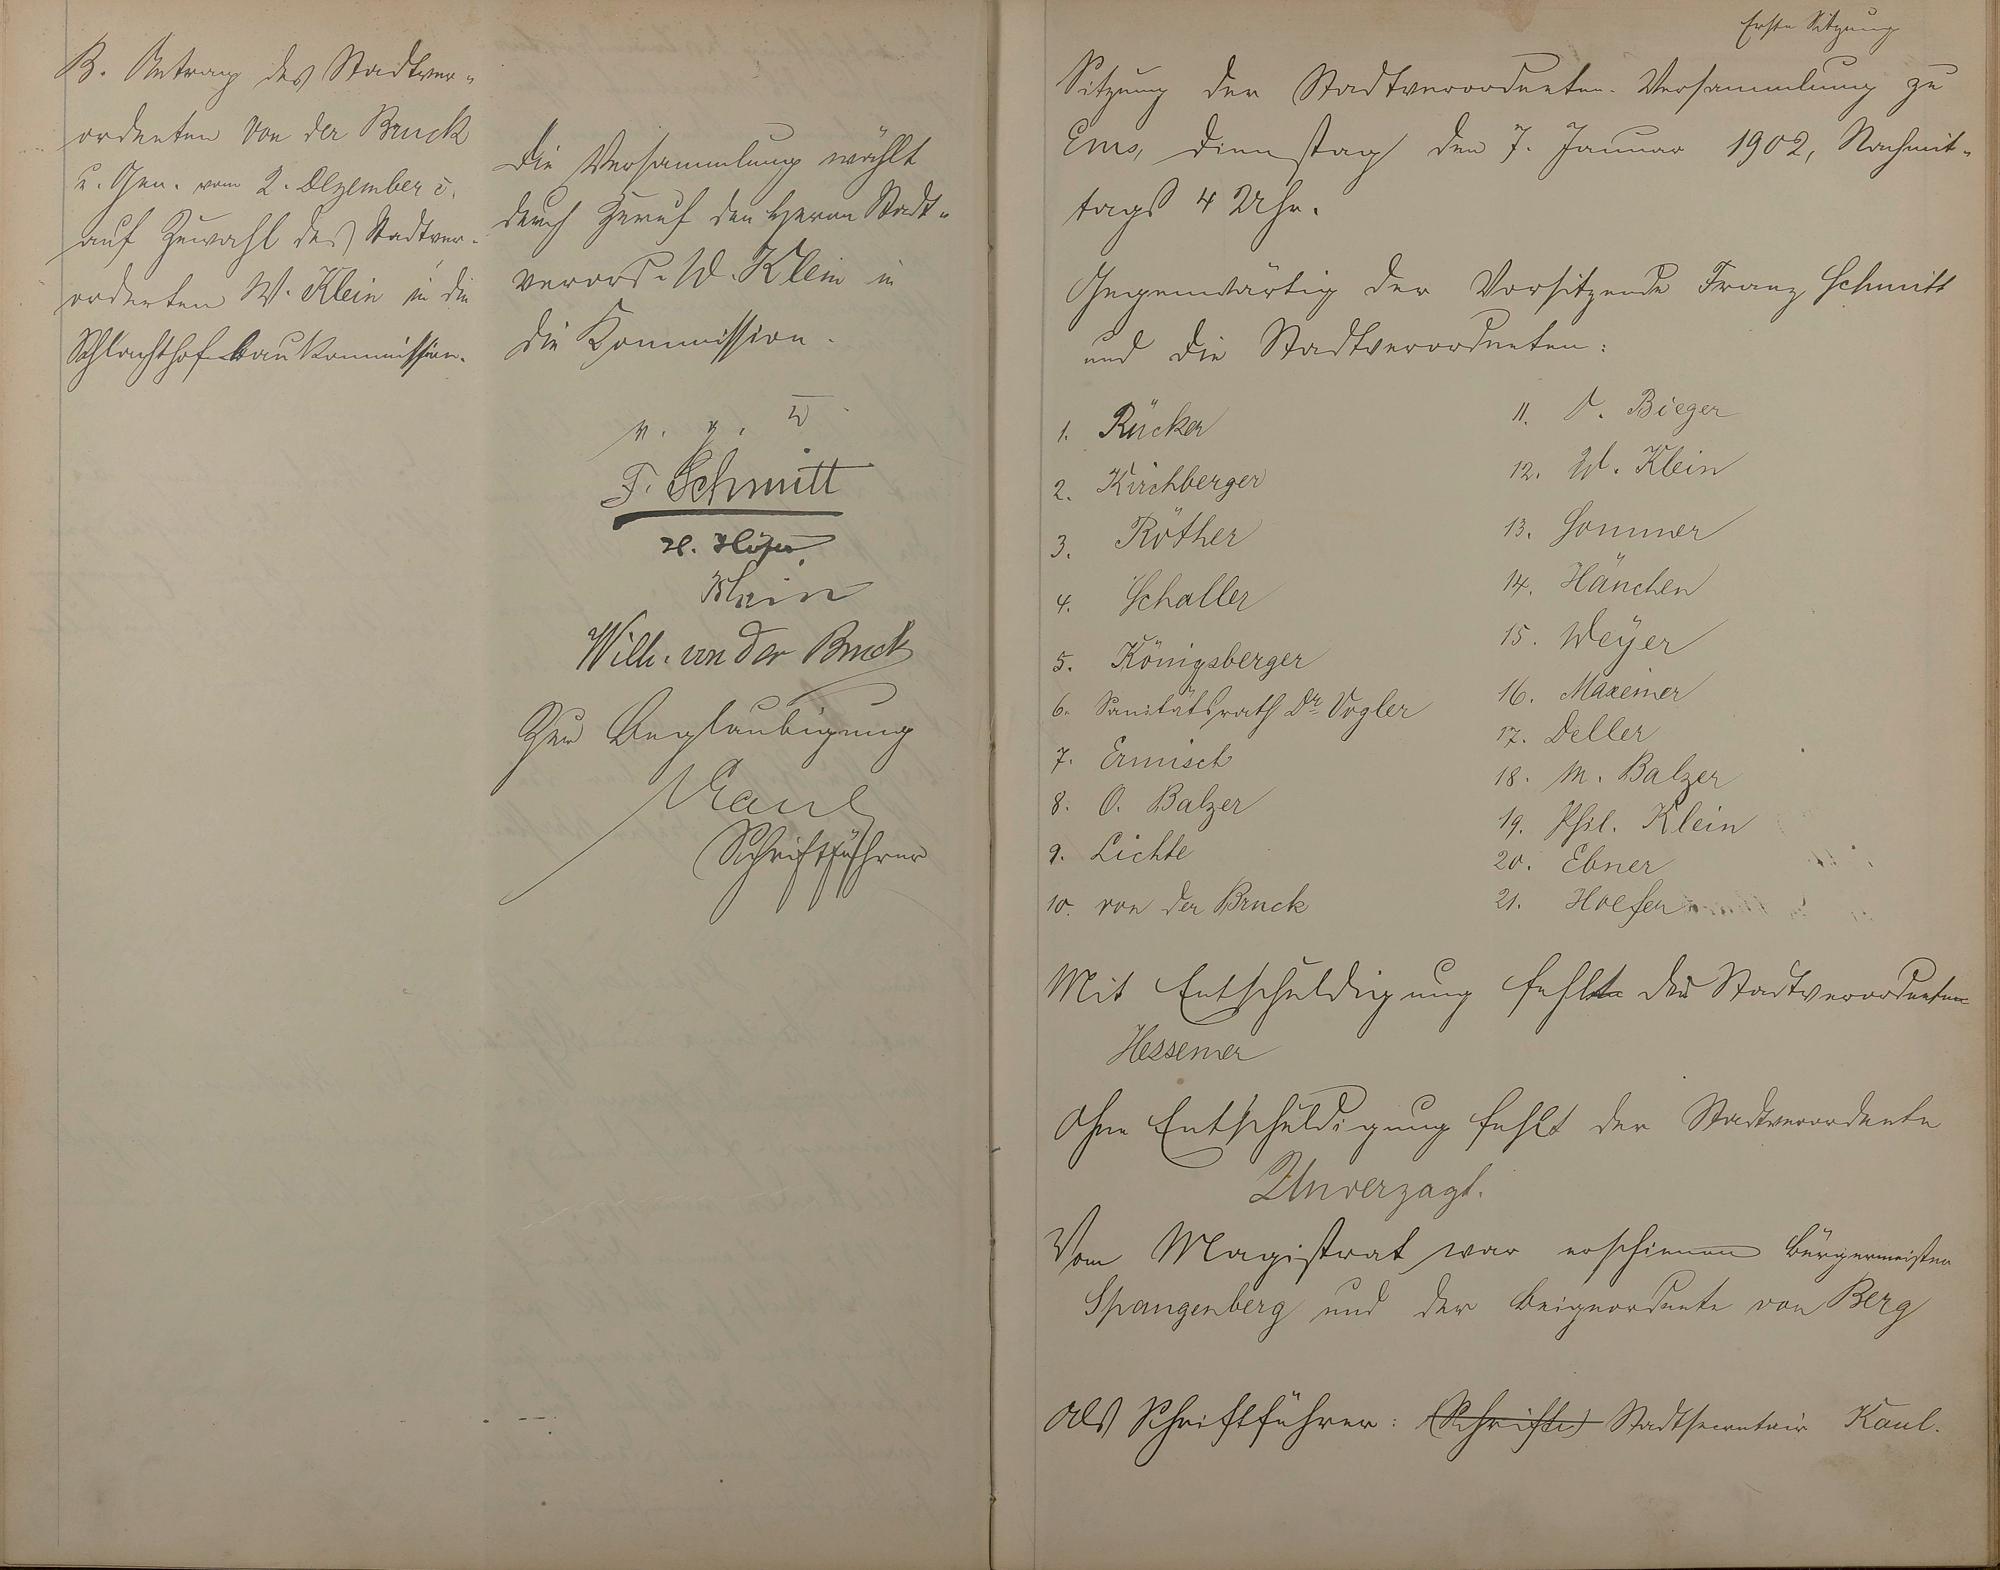 B. Antrag des Stadtver-
ordneten von der Bruck
u. Gen. vom 2. Dezember v.
auf Zuwahl des Stadtver-
ordneten W. Klein in die
Schlachthof-bau Kommission.
Die Versammlung wählt
durch Zuruf den Herrn Stadt-
verord. W. Klein in
die Kommission.
v. g. u.
F. Schmitt
H. Höfer
Klein
Wilh. von der Bruck
Zur Beglaubigung
Kaul
Schriftführer
Erste Sitzung
Sitzung der Stadtverordneten-Versammlung zu
Ems, Dienstag den 7. Januar 1902, Nachmit-
tags 4 Uhr.
Gegenwärtig der Vorsitzende Franz Schmitt
und die Stadtverordneten:
1. Rücker
2. Kirchberger
3. Röther
4. Schaller
5. Königsberger
6. Sanitätsrath Dr. Vogler
7. Ermisch
8. O. Balzer
9. Lichte
10. von der Bruck
11. Bieger
12. W. Klein
13. Sommer
14. Hänchen
15. Weyer
16. Maxeiner
17. Deller
18. M. Balzer
19. Phil. Klein
20. Ebner
21. Hoefer
Mit Entschuldigung fehlt der Stadtverordneten
Hessemer
Ohne Entschuldigung fehlt der Stadtverordnete
Unverzagt.
Vom Magistrat war erschienen Bürgermeister
Spangenberg und der Beigeordnete von Berg
Als Schriftführer: (Schriftf) Stadtsecretair Kaul.